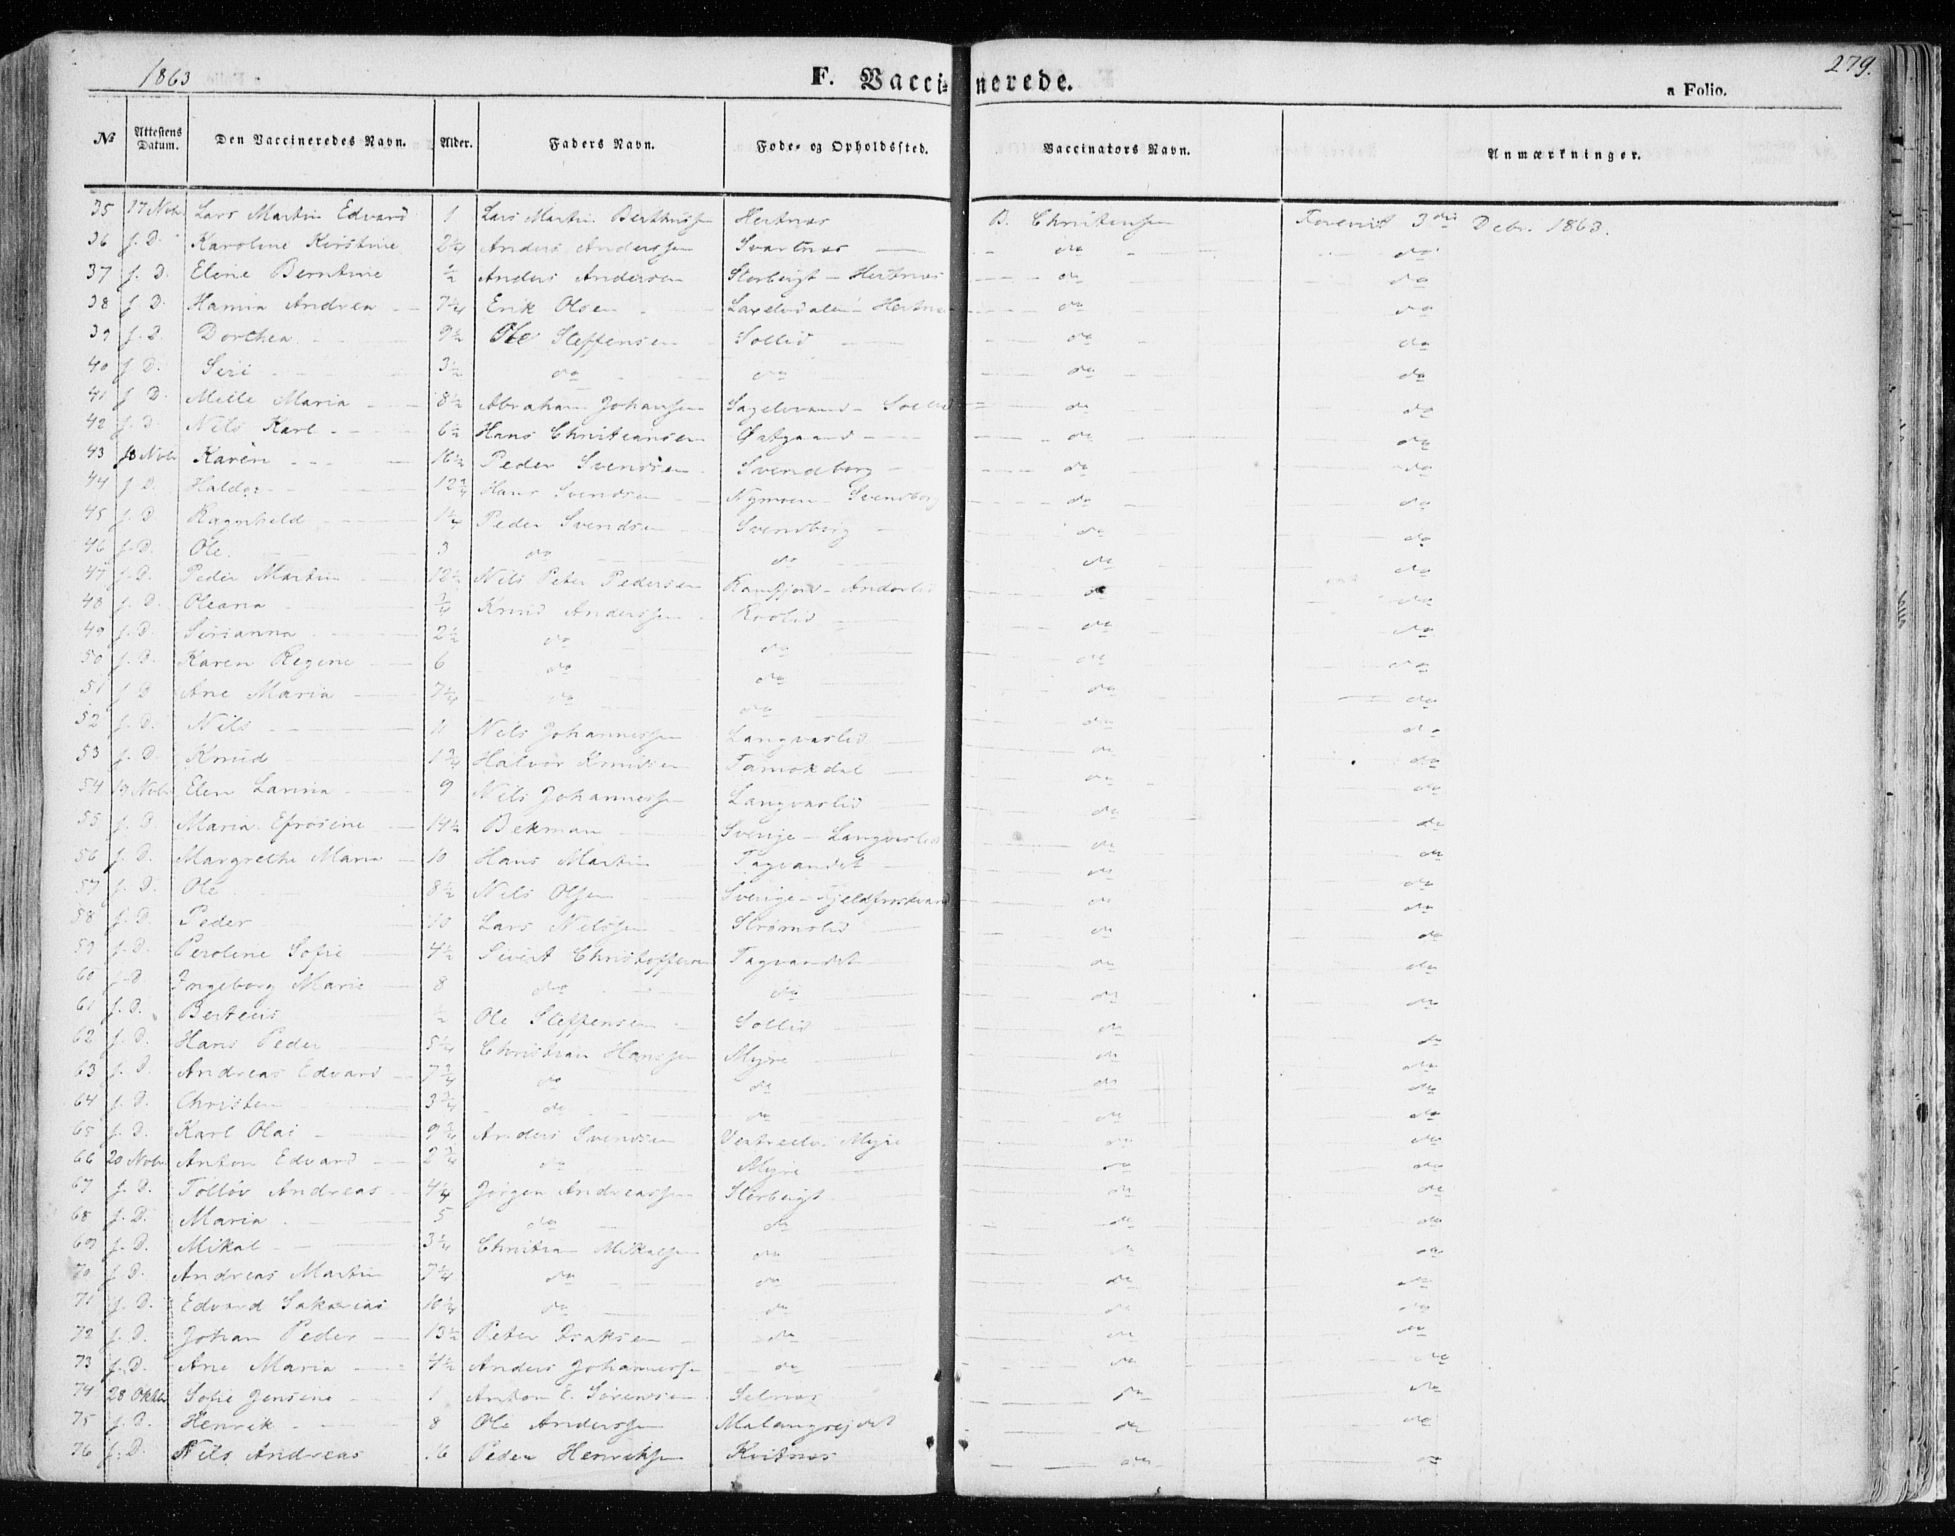 1863
F. Vaccinerede.
279.
a Folio.
№ Attestens Datum. Den Vaccineredes Navn. Alder. Faders Navn. Føde- og Opholdssted. Vaccinators Navn. Anmærkninger.
35 17 Nobr Lars Martin Edvard 1 Lars Martin Berthussen Hertnæs B. Christensen 3die Debr. 1863.
36 f. D. Karoline Kirstine 2¼ Anders Anderssen Svartnæs do do
37 f. D. Eline Berntine ½ Anders Andersen Storbeigt - Hertnæs do do
38 f. D. Hanna Andrea 7¼ Erik Olsen Laxelvdalen - Hertnæs do do
39 f. D. Dorthea 9½ Ole Steffensen Sollid do do
40 f. D. Siri 3½ do do do do
41 f. D. Melle Maria 8½ Abraham Johansen Sagelvvand - Sollid do do
42 f. D. Nils Karl 6½ Hans Christiansen Østgaard do do
43 18 Nobr Karen 16½ Peder Svendsen Svendborg do do
44 f. D. Haldor 12¾ Hans Svendsen Nymoen - Svendborg do do
45 f. D. Ragnhild Peder Svendsen Svendborg do do
46 f. D. Ole 3 do do do do
47 f. D. Peder Martin 12½ Nils Peter Pedersen Ramfjord - Andorlid do do
48 f. D. Oleana ¾ Knud Anderssen Kvolid do do
49 f. D. Sirianna 2½ do do do do
50 f. D. Karen Regine 6 do do do do
51 f. D. Ane Maria 7¼ do do do do
52 f. D. Nils 11 Nils Johannessen Langvaslid do do
53 f. D. Knud 1¾ Halvor Knudsen Tamokdal do do
54 19 Nobr Elen Larina 9 Nils Johannessen Langvaslid do do
55 f. D. Maria Efrosine 14½ Bekman Sverige - Langvaslid do do
56 f. D. Margrethe Maria 10 Hans Martin Tagvandet do do
57 f. D. Ole 8½ Nils Olsen Sverige - Fjeldfroskvand do do
58 f. D. Peder 10 Lars Nilssen Strømslid do do
59 f. D. Peroline Sofie 4½ Sivert Christoffersen Tagvandet do do
60 f. D. Ingeborg Marie 8 do do do do
61 f. D. Berteus ½ Ole Steffensen Sollid do do
62 f. D. Hans Peder 5¼ Christian Hanssen Myre do do
63 f. D. Andreas Edvard 7¾ do do do do
64 f. D. Christen 3¾ do do do do
65 f. D. Karl Olai 9¾ Anders Svendsen Myre do do
66 20 Nobr Anton Edvard 2¾ do Myre do do
67 f. D. Tolløv Andreas 4¼ Jørgen Andreassen Storbeigt do do
68 f. D. Maria 5 do do do do
69 f. D. Mikal 3¼ Christian Mikalsen do do do
70 f. D. Andreas Martin 7¼ do do do do
71 f. D. Edvard Sakarias 10¼ do do do do
72 f. D. Johan Peder 13½ Peter Isaksen do do do
73 f. D. Ane Maria 4½ Anders Johannessen do do do
74 28 Oktbr Sofie Jensine 1 Anton E. Sørensen Selnæs do do
75 f. D. Henrik 8 Ole Anderssen Malangsejdet do do
76 f. D. Nils Andreas 16 Peder Henriksen Kvitnæs do do